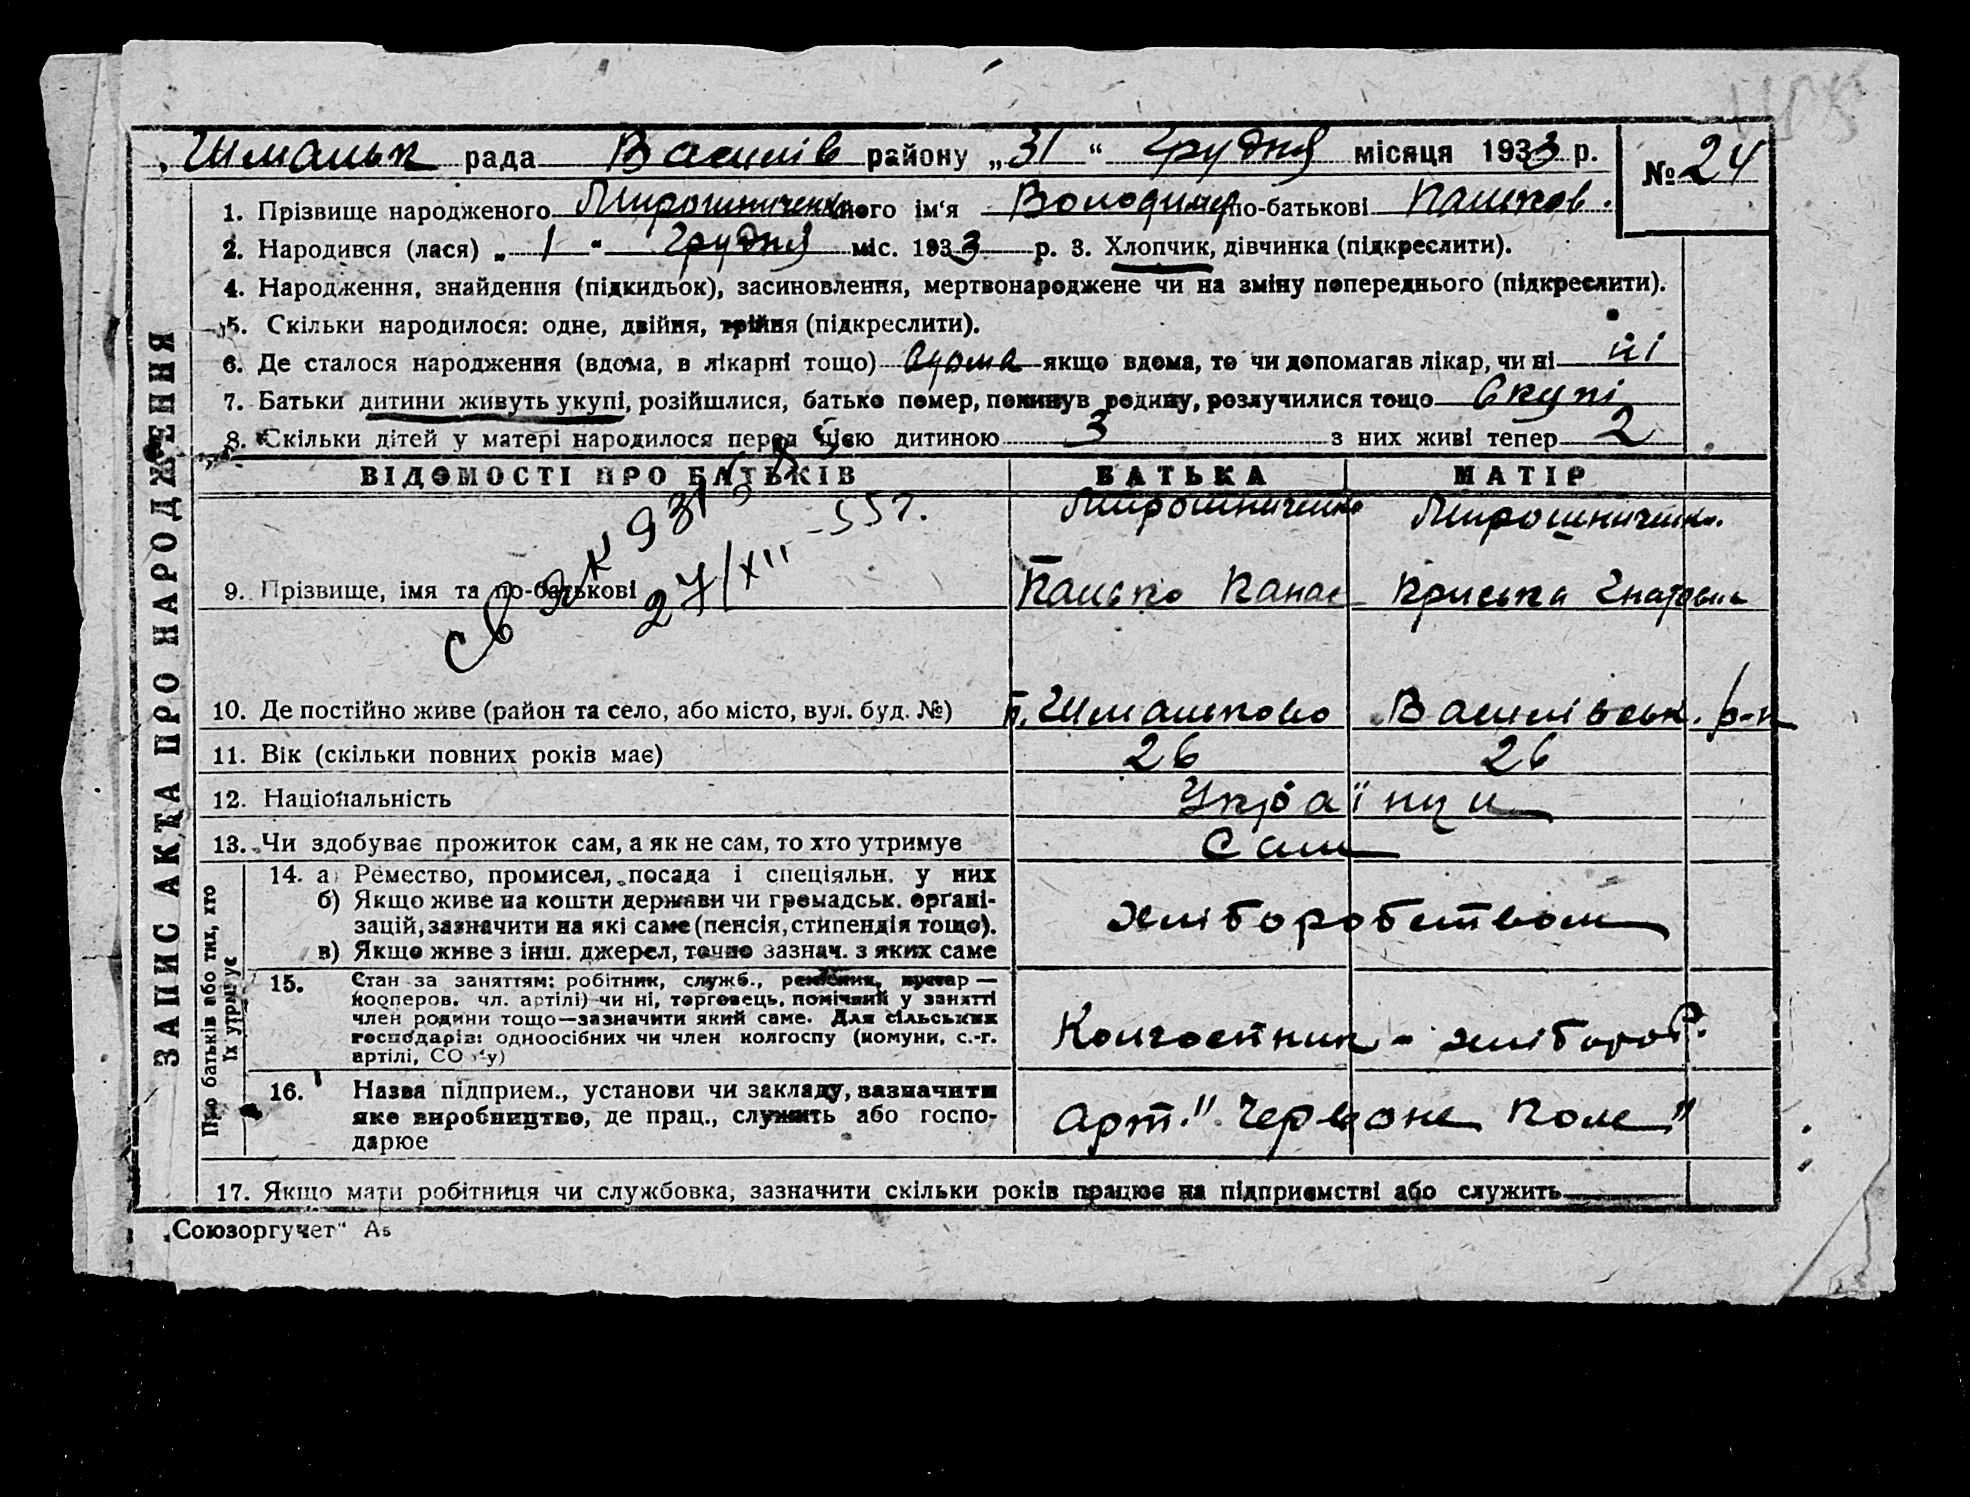 Шмальк рада Василів району „31“ Грудня місяця 1933 р. №24
1. Прізвище народженого Мирошниченко його ім‘я Володимир по-батькові Пальков.
2. Народився (лася) „1“ Грудня міс. 1933 р. 3. Хлопчик, дівчинка (підкреслити).
4. Народження, знайдення (підкидьок), засиновлення, мертвонароджене чи на зміну попереднього (підкреслити).
5. Скільки народилося: одне, двійня, трійня (підкреслити).
6. Де сталося народження (вдома, в лікарні тощо) вдома якщо вдома, то чи допомагав лікар, чи ні ні
7. Батьки дитини живуть укупі, розійшлися, батько помер, покинув родину, розлучилися тощо Вкупі
8. Скільки дітей у матері народилося перед цією дитиною 3 з них живі тепер 2
ЗАПИС АКТА ПРО НАРОДЖЕННЯ
ВІДОМОСТІ ПРО БАТЬКІВ БАТЬКА МАТІР
Мирошниченко Мирошниченко.
27/XII-55г.
9. Прізвище, імя та по-батькові Панас Криська Гнатовна
10. Де постійно живе (район та село, або місто, вул. буд. №) Шмальково Василівськ. р-н
11. Вік (скільки повних років має) 26 26
12. Національність Українци
13. Чи здобуває прожиток сам, а як не сам, то хто утримує Сам
Про батьків або тих, хто їх утримує
14. а) Ремество, промисел, посада і спеціяльн. у них
б) Якщо живе на кошти держави чи громадськ. органі-
зацій, зазначити на які саме (пенсія, стипендія тощо).
хліборобством
в) Якщо живе з інш. джерел, точно зазнач. з яких саме
15. Стан за заняттям: робітник, служб., ремісник, кустар —
кооперов. чл. артілі) чи ні, торговець, помічний у занятті
член родини тощо—зазначити який саме. Для сільських
господарів: одноосібних чи член колгоспу (комуни, с.-г.
артілі, СОЗ‘у)
Колгоспник - хлібороб.
16. Назва підприєм., установи чи закладу, зазначити
яке виробництво, де прац., служить або госпо-
дарює
Арт. "Червоне Поле"
17. Якщо мати робітниця чи службовка, зазначити скільки років працює на підприємстві або служить
„Союзоргучет“ А5